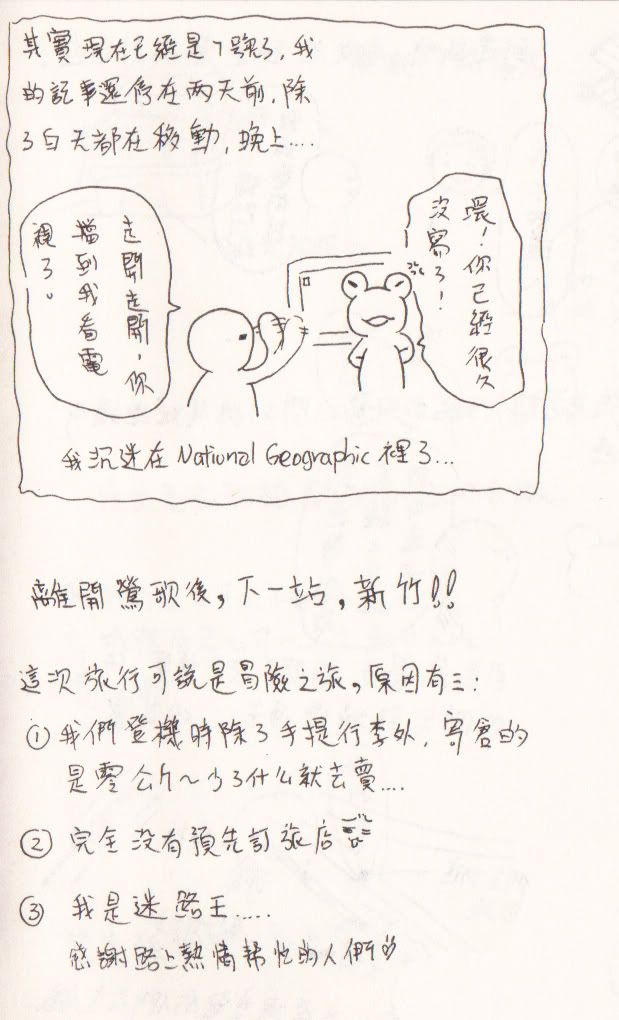 其實現在已經是7號了,我
的記事還停在两天前,除
了白天都在移動,晚上....
喂!你已經很久
沒寫了!
走開走開,你
擋到我看電
視了。
我沉迷在 National Geographic 裡了...
離開鶯歌後,下一站,新竹!!
這次旅行可說是冒險之旅,原因有三:
① 我們登機時除了手提行李外,寄倉的
是零公斤~少了什么就去賣....
② 完全没有預先訂旅店
③ 我是迷路王.....
感謝路上熱情幫忙的人們